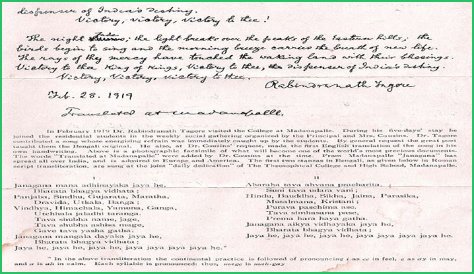 dispenser of India's destiny.
Victory, Victory, Victory to thee!
The night fades, the light breaks over the peaks of the Eastern hills; the
birds begin to sing and the morning breeze carries the breath of new life.
The rays of thy mercy have touched the waking land with their blessings.
Victory to thee King of Kings, Victory to thee, the dispenser of India's destiny.
Victory, Victory, Victory to thee.
Rabindranath Tagore
Feb. 28. 1919
Translated at Madanapalle
In February 1919 Dr. Rabindranath Tagore visited the College at Madanapalle. During his five-days' stay he
joined the residential students in the weekly social gathering organised by the Principal and Mrs. Cousins. Dr. Tagore
contributed a song whose energising refrain was immediately caught up by the students. By general request the great poet
taught them the Bengali original. He also, at Dr. Cousins' request, made the first English translation of the song in his
own handwriting. The above is a photographic facsimile of what will become one of the world's most precious documents.
The words "Translated at Madanapalle" were added by Dr. Cousins at the time. From Madanapalle "Janagana" has
spread all over India, and is admired in Europe and America. The first two stanzas in Bengali, as given below in Roman
script transliteration, are sung at the joint "daily dedication" of The Theosophical College and High School, Madanapalle.
I
Janagana mana adhinayaka jaya he,
Bharata bhagya vidhata;
Panjaba, Sindhu, Gujarata, Maratha,
Dravida, Utkala, Banga;
Vindhya, Himachala, Yamuna, Ganga,
Uchhala jaladhi taranga.
Tava shubha name, jage,
Tava shubha ashisha mage,
Gave tava yasha gatha.
Janagana mangala dayaka jaya he,
Bharata bhagya vidhata;
Jaya he, jaya he, jaya he, jaya jaya jaya jaya he.
II
Aharaha tava ahvana pracharita,
Suni tava udara vani;
Hindu, Bauddha, Sikha, Jaina, Parasika,
Musalmana, Kristani;
Purava paschima ashe,
Tava simhasana pase,
Prema hara haya gatha.
Janagana aikya vidhayaka jaya he,
Bharata bhagya vidhata;
Jaya he, jaya he, jaya he, jaya jaya jaya jaya he.
* In the above transliteration the continental practice is followed of pronouncing i as ee in feel, e as ay in may,
and a as ah in calm. Each syllable is pronounced: thus, mage is mah-gay